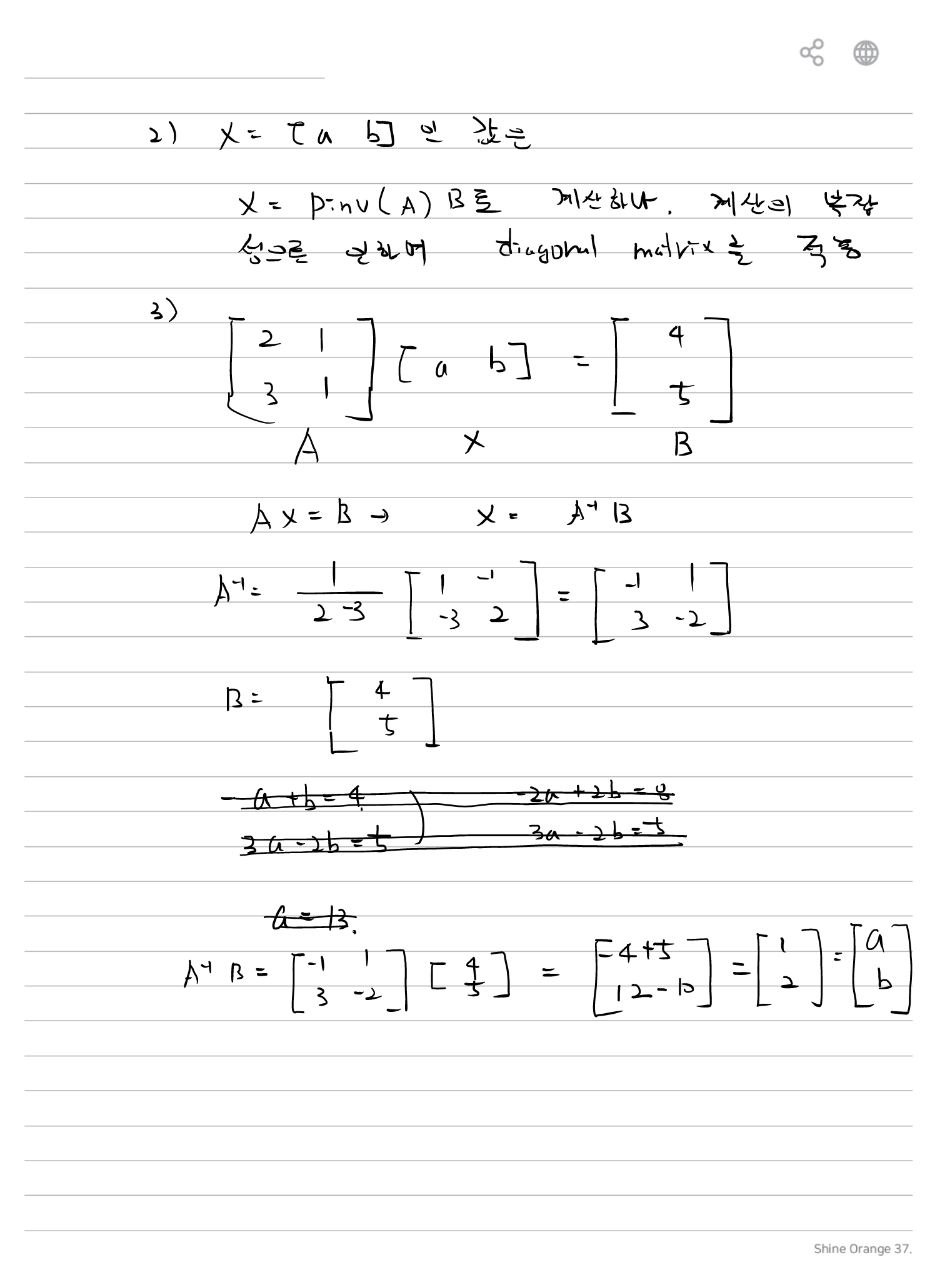 2) X = [a b] 인 값은
X = Pinv(A) B로 계산하나, 계산의 복잡
성으로 인하여 diagonal matrix를 적용
3)
[2 1
3 1] [a b] = [4
5]
A X B
AX = B → X = A⁻¹ B
A⁻¹ = 1/(2-3) [1 -1
-3 2] = [-1 1
3 -2]
B = [4
5]
-a+b=4 -2a+2b=8
3a-2b=5 3a-2b=5
a=13.
A⁻¹ B = [-1 1
3 -2] [4
5] = [-4+5
12-10] = [1
2] = [a
b]
Shine Orange 37.